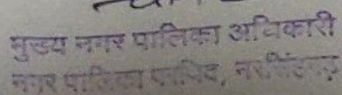 मुख्य नगर पालिका अधिकारी
नगर पालिका परिषद, नरसिंहगढ़